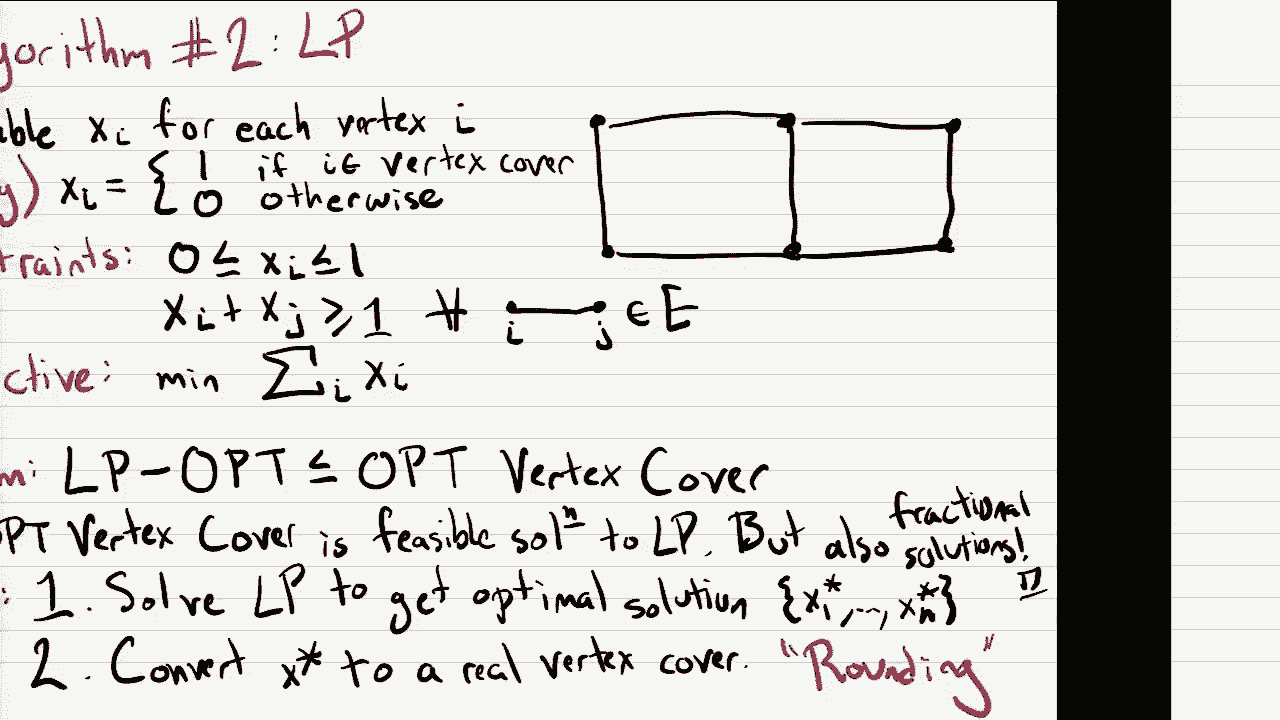 gorithm #2: LP
able xᵢ for each vertex i
y) xᵢ = { 1 if i ∈ vertex cover
0 otherwise
traints: 0 ≤ xᵢ ≤ 1
xᵢ + xⱼ ≥ 1 ∀ i j ∈ E
ctive: min Σᵢ xᵢ
m: LP-OPT ≤ OPT Vertex Cover
OPT Vertex Cover is feasible solⁿ to LP. But also fractional solutions!
: 1. Solve LP to get optimal solution {x₁*, ..., xₙ*}
2. Convert x* to a real vertex cover. "Rounding"